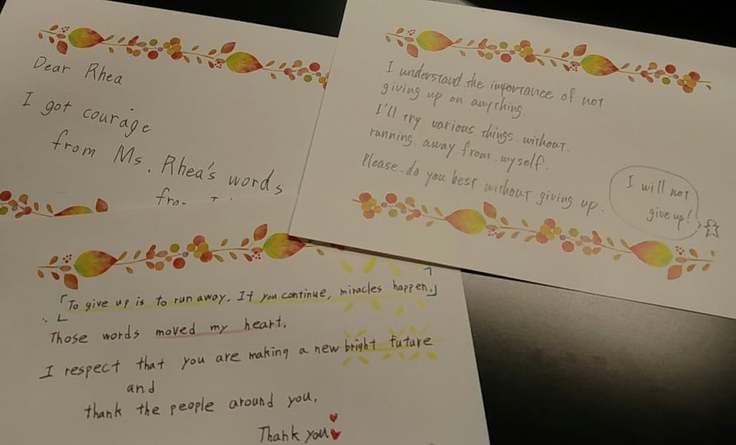 Dear Rhea
I got courage
from Ms. Rhea's words
I understand the importance of not
giving up on anything.
I'll try various things without
running away from myself.
Please do you best without giving up.
I will not
give up!
「To give up is to run away. If you continue, miracles happen.」
Those words moved my heart.
I respect that you are making a new bright future
and
thank the people around you.
Thank you